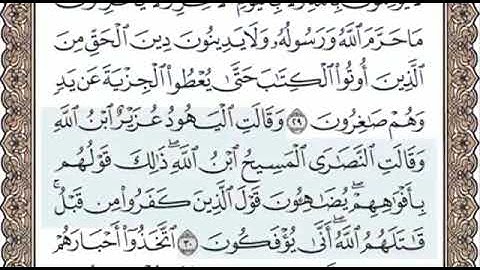 مَا حَرَّمَ ٱللَّهُ وَرَسُولُهُۥ وَلَا يَدِينُونَ دِينَ ٱلْحَقِّ مِنَ
ٱلَّذِينَ أُوتُوا۟ ٱلْكِتَٰبَ حَتَّىٰ يُعْطُوا۟ ٱلْجِزْيَةَ عَن يَدٍ
وَهُمْ صَٰغِرُونَ ٢٩ وَقَالَتِ ٱلْيَهُودُ عُزَيْرٌ ٱبْنُ ٱللَّهِ
وَقَالَتِ ٱلنَّصَٰرَى ٱلْمَسِيحُ ٱبْنُ ٱللَّهِ ۖ ذَٰلِكَ قَوْلُهُم
بِأَفْوَٰهِهِمْ ۖ يُضَٰهِـُٔونَ قَوْلَ ٱلَّذِينَ كَفَرُوا۟ مِن قَبْلُ ۚ
قَٰتَلَهُمُ ٱللَّهُ ۚ أَنَّىٰ يُؤْفَكُونَ ٣٠ ٱتَّخَذُوٓا۟ أَحْبَارَهُمْ